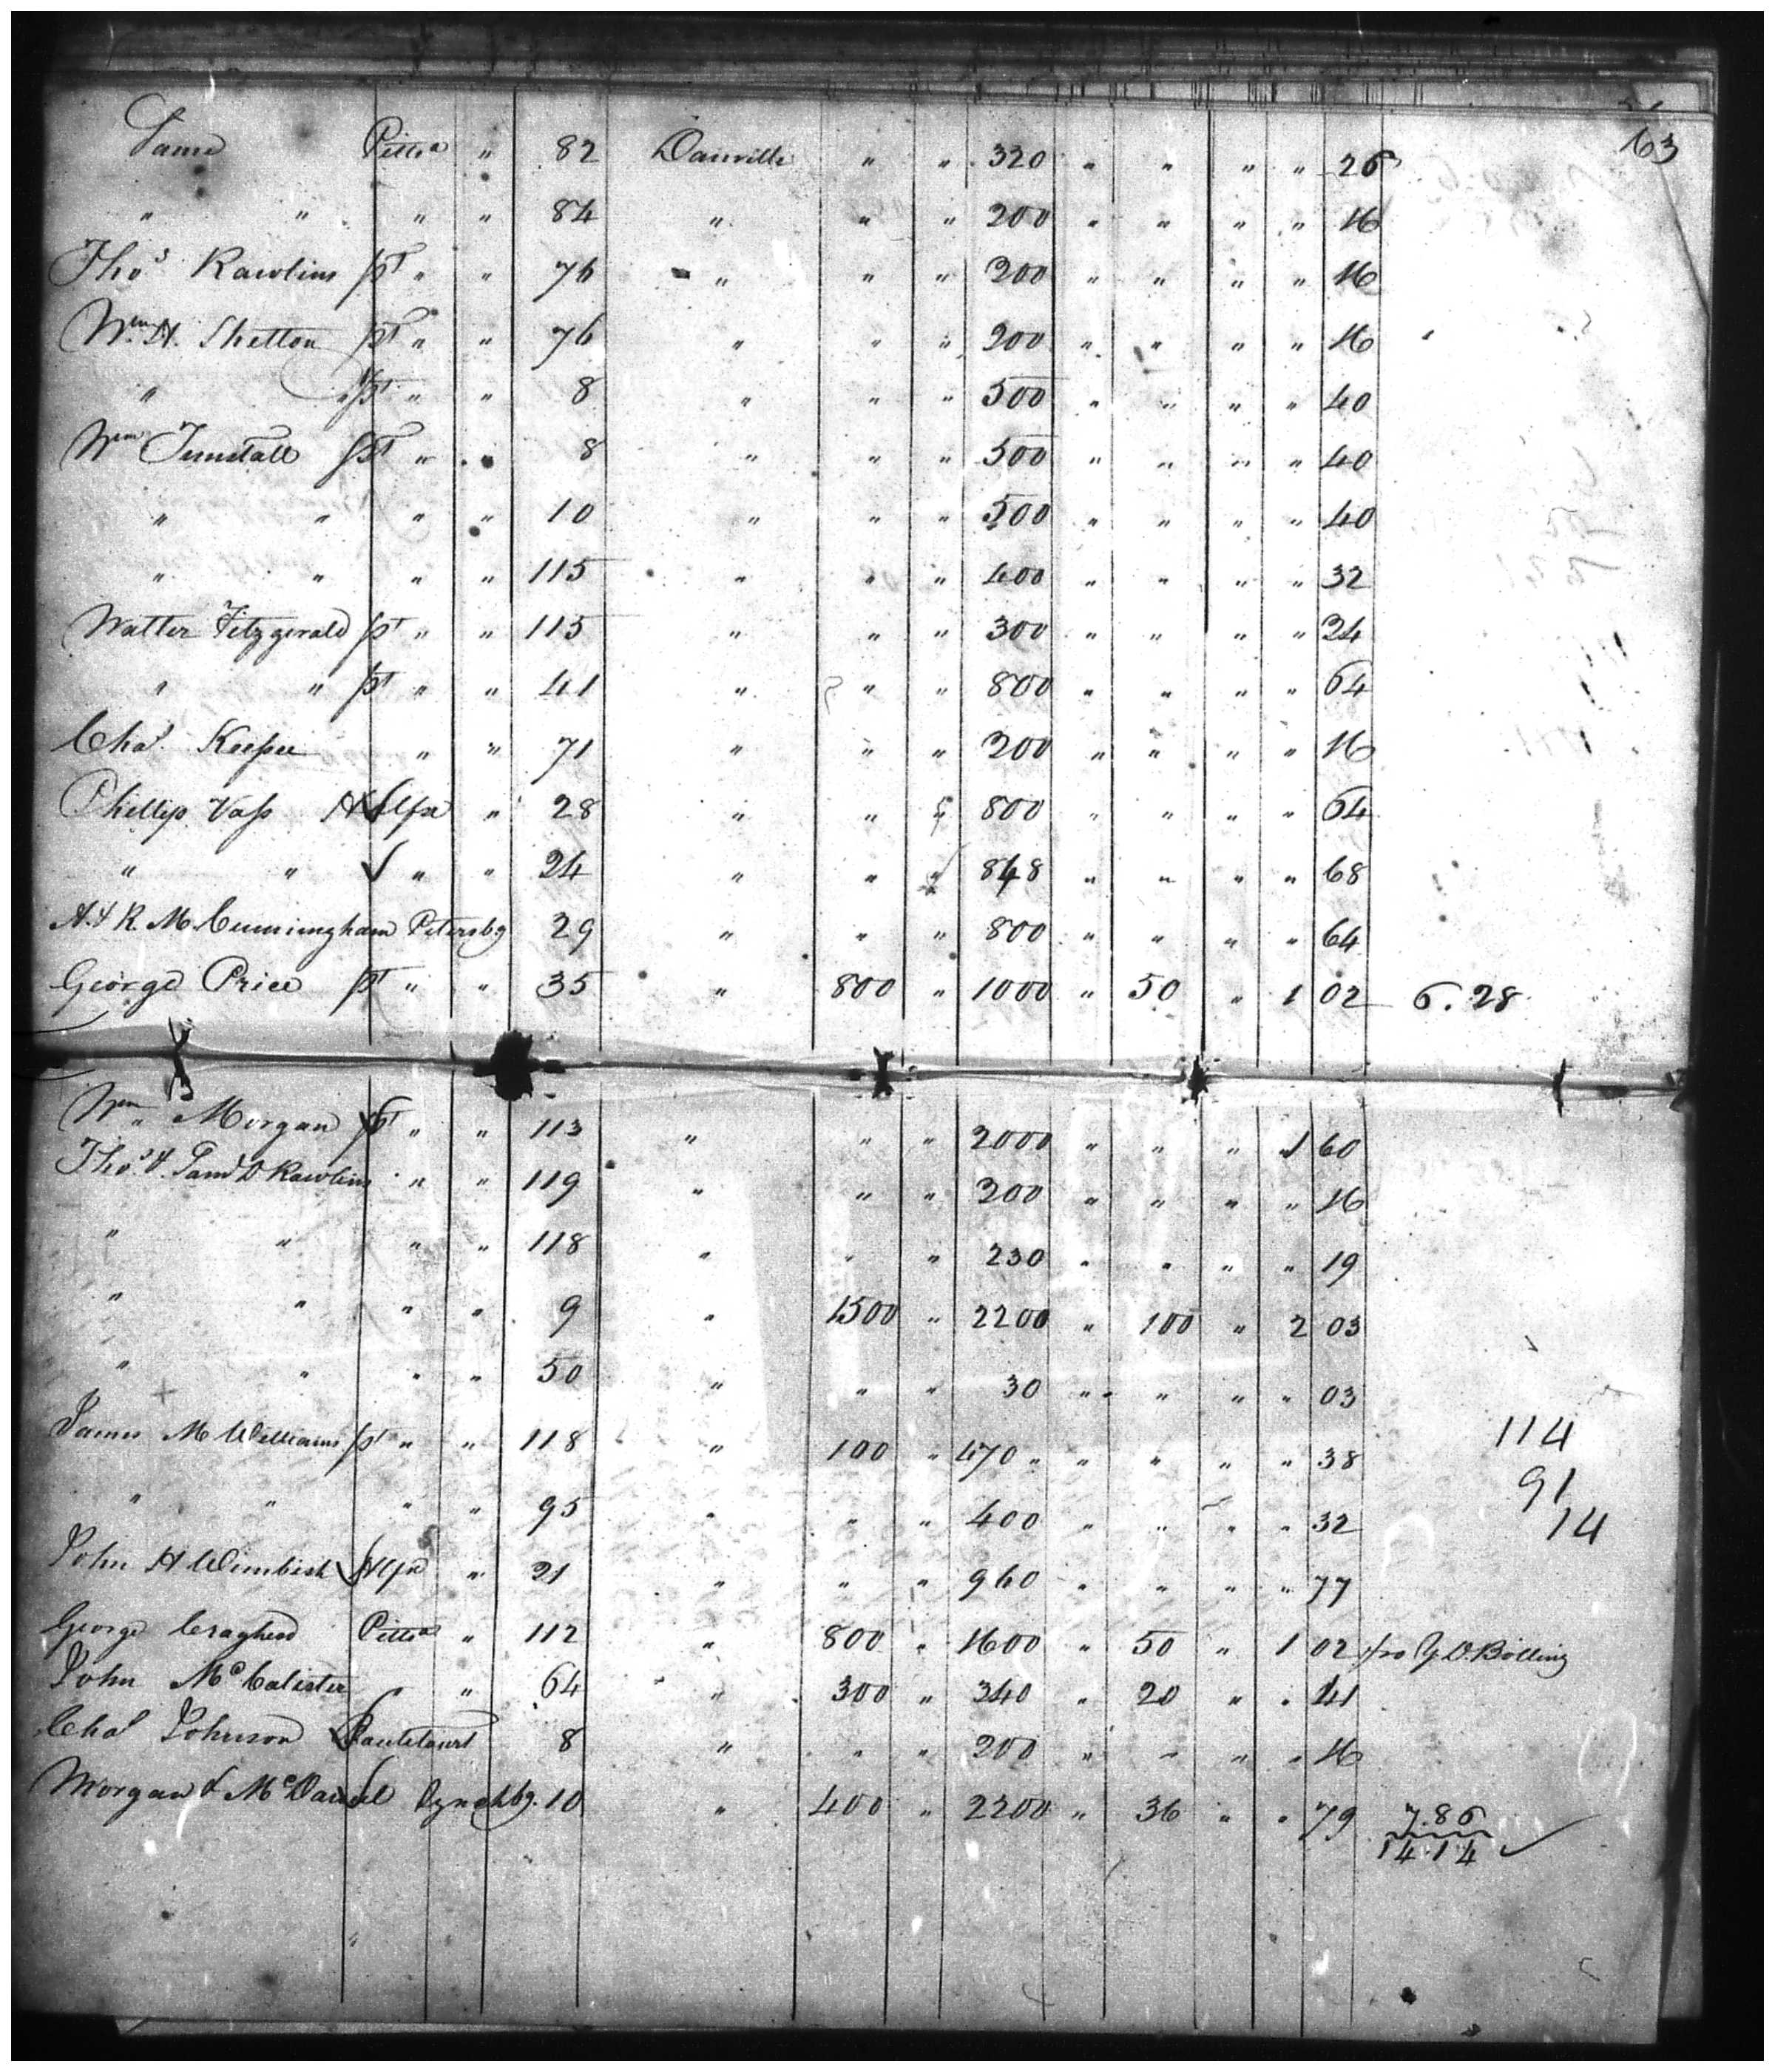 63
Same Pittsa " 82 Danville " " 320 " " " " 26
" " " " 84 " " " 200 " " " " 16
Thos Rawlins pt " " 76 " " " 200 " " " " 16
Wm H. Shelton pt " " 76 " " " 200 " " " " 16
" " pt " " 8 " " " 500 " " " " 40
Wm Tunstall pt " " 8 " " " 500 " " " " 40
" " " " 10 " " " 500 " " " " 40
" " " " 115 " " " 400 " " " " 32
Walter Fitzgerald pt " " 115 " " " 300 " " " " 24
" " pt " " 41 " " " 800 " " " " 64
Chas. " " 71 " " " 200 " " " " 16
Phillip Vass Halfx " 28 " " " 800 " " " " 64
" " " " 24 " " " 848 " " " " 68
A. & R. M. Cunningham Petersbg 29 " " " 800 " " " " 64
George Price pt " " 35 " 800 " 1000 " 50 " 1 02 6.28
Wm Morgan pt " " 113 " " " 2000 " " " 1 60
Thos & Saml D Rawlins " " 119 " " " 200 " " " " 16
" " " " 118 " " " 230 " " " " 19
" " " " 9 " 1500 " 2200 " 100 " 2 03
" " " " 50 " " " 30 " " " " 03
James M Williams pt " " 118 " 100 " 470 " " " " " 38 114
" " " " 95 " " " 400 " " " " 32 91
14
John H Wimbish Halfx " 21 " " " 960 " " " " 77
George Craghead Pittsa " 112 " 800 " 1600 " 50 " 1 02 Bolling
John McCalister " " 64 " 300 " 340 " 20 " " 41
Chas Johnson 8 " " " 200 " " " " 16
Morgan & McDaniel Lynchbg. 10 " 400 " 2200 " 36 " " 79 7.86
14.14